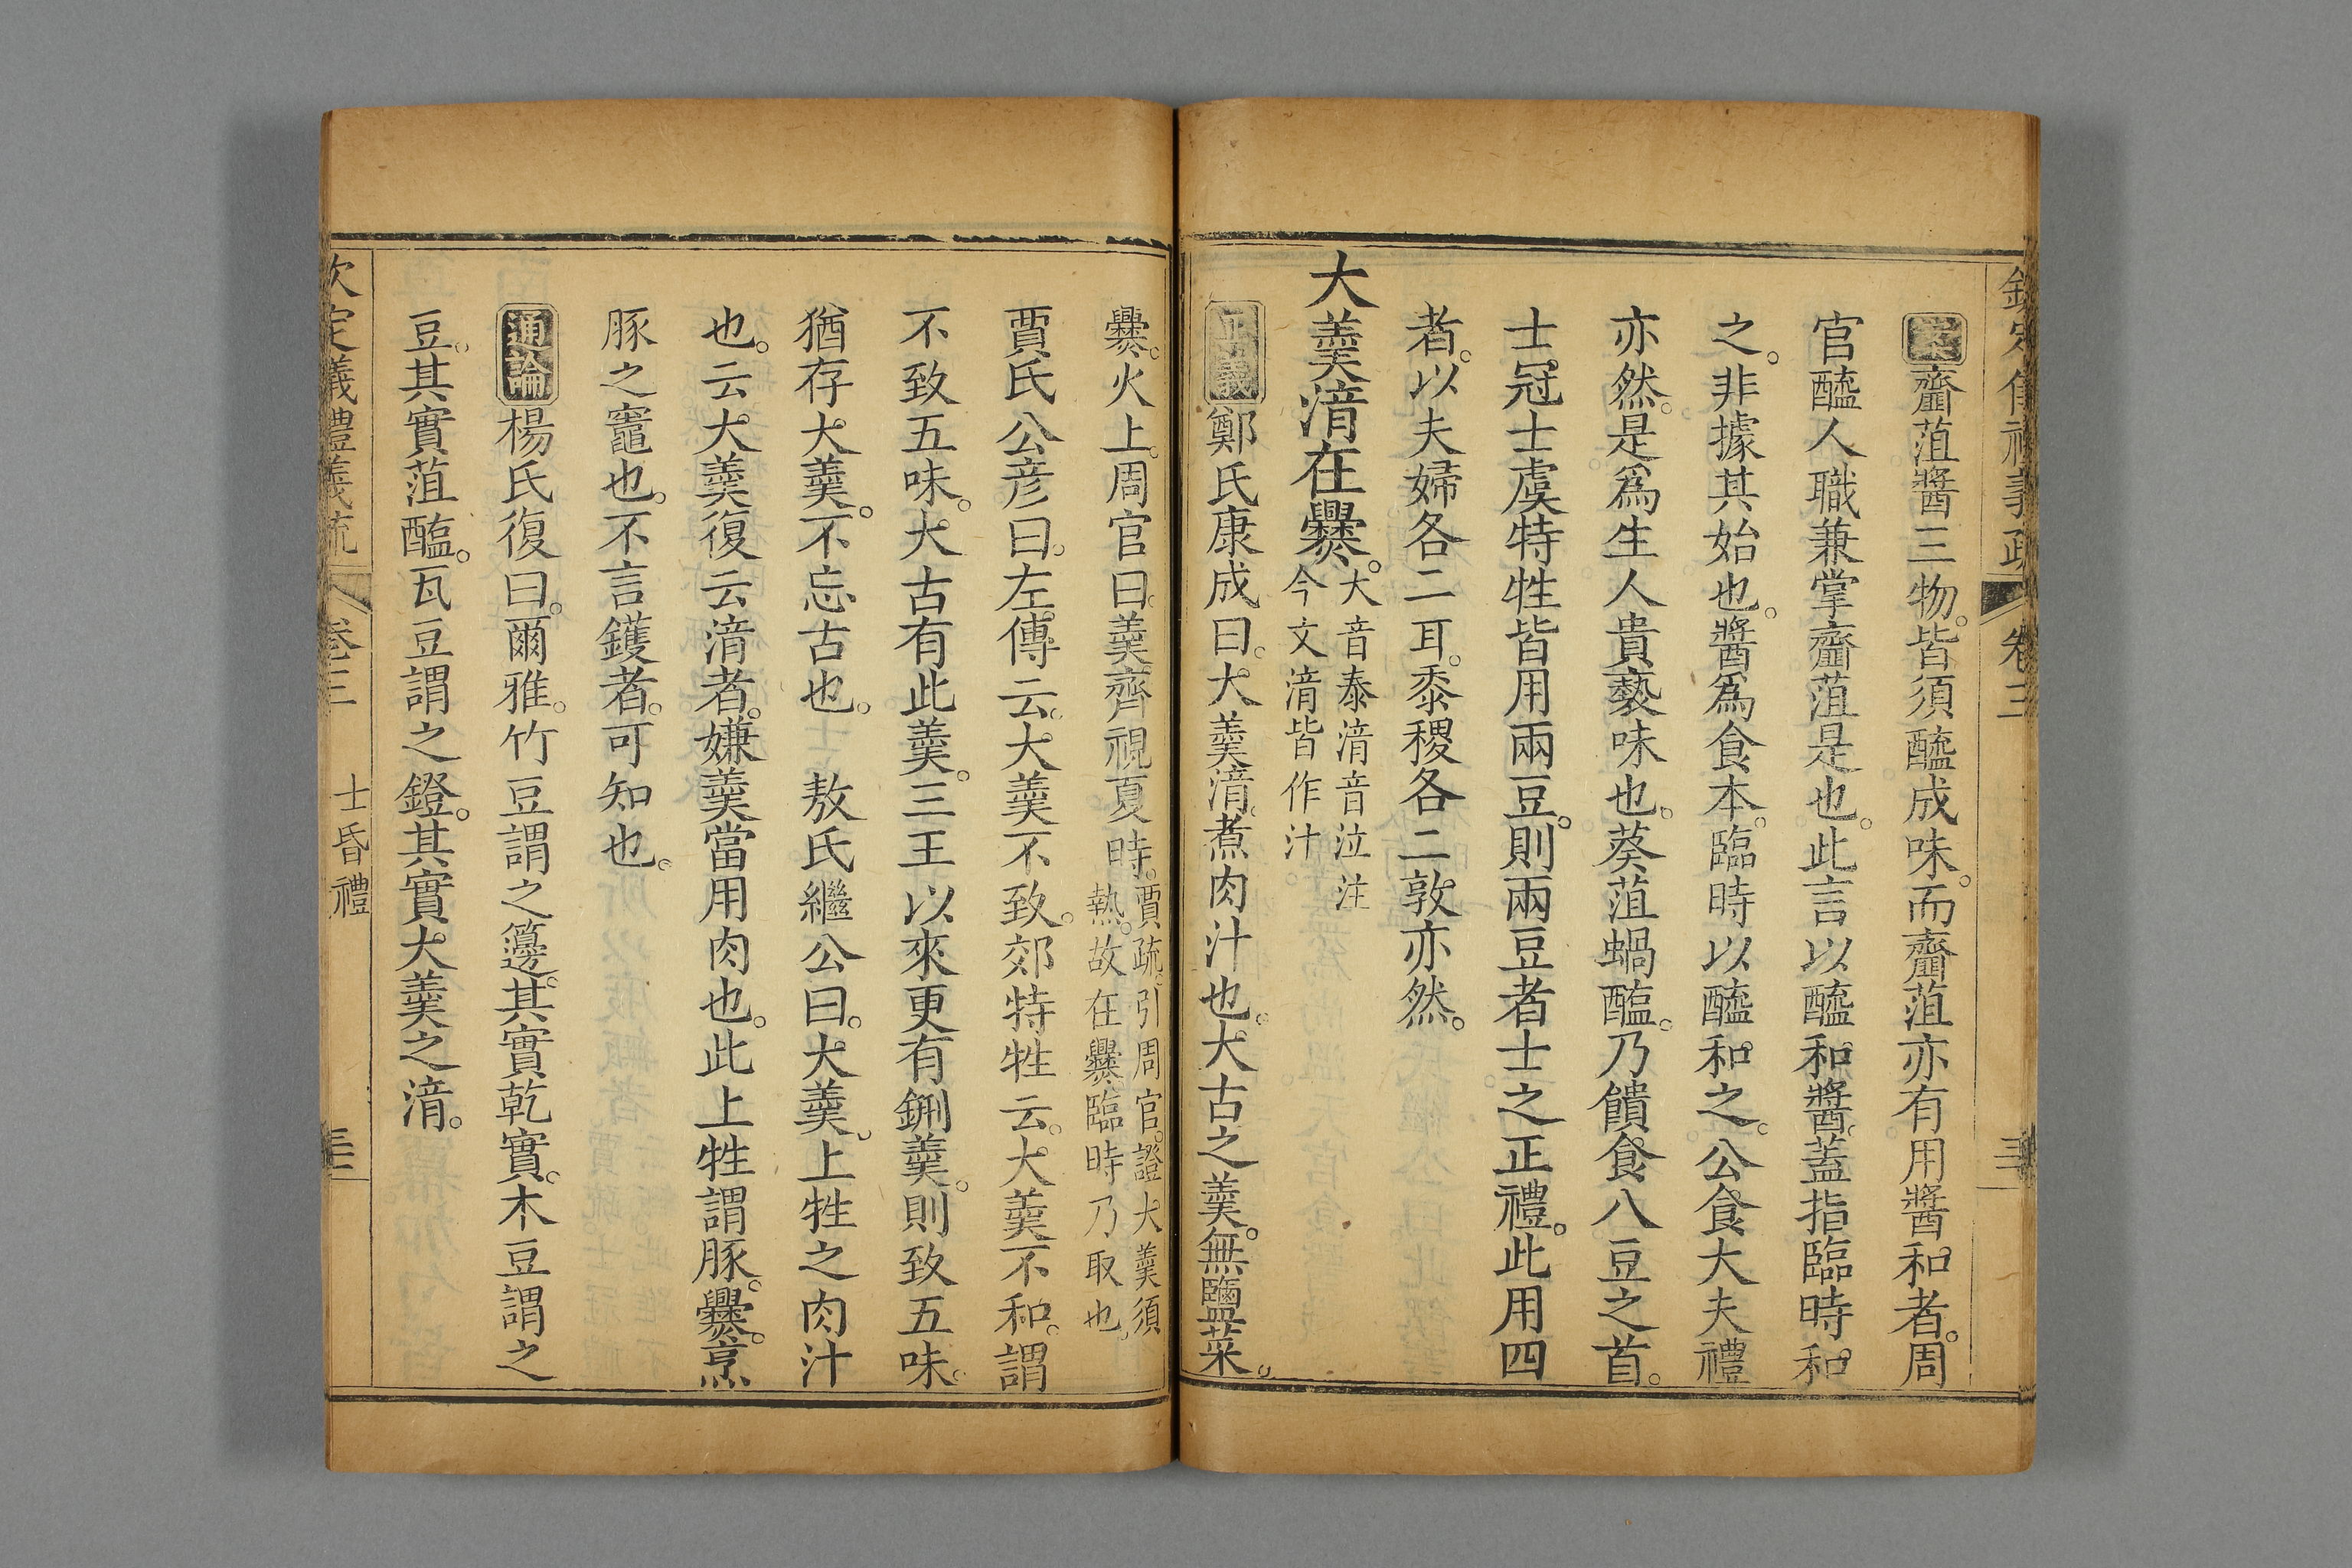 欽定儀禮義疏 卷三
案齏菹醬三物皆須醯成味而齏菹亦有用醬和者周
官醯人職兼掌齏菹是也此言以醯和醬蓋指臨時和
之非據其始也醬爲食本臨時以醯和之公食大夫禮
亦然是爲生人貴褻味也葵菹蝸醢乃饋食八豆之首
士冠士虞特牲皆用兩豆則兩豆者士之正禮此用四
者以夫婦各二耳黍稷各二敦亦然
大羹湆在爨大音泰湆音泣注
今文湆皆作汁
正義鄭氏康成曰大羹湆煮肉汁也大古之羹無鹽菜
爨火上周官曰羹齊視夏時賈疏引周官證大羹須
熱故在爨臨時乃取也
賈氏公彦曰左傳云大羹不致郊特牲云大羹不和謂
不致五味大古有此羹三王以來更有鉶羹則致五味
猶存大羹不忘古也 敖氏繼公曰大羹上牲之肉汁
也云大羹復云湆者嫌羹當用肉也此上牲謂豚爨烹
豚之竈也不言鑊者可知也
通論楊氏復曰爾雅竹豆謂之籩其實乾實木豆謂之
豆其實菹醢瓦豆謂之鐙其實大羹之湆
欽定儀禮義疏 卷三 士昏禮